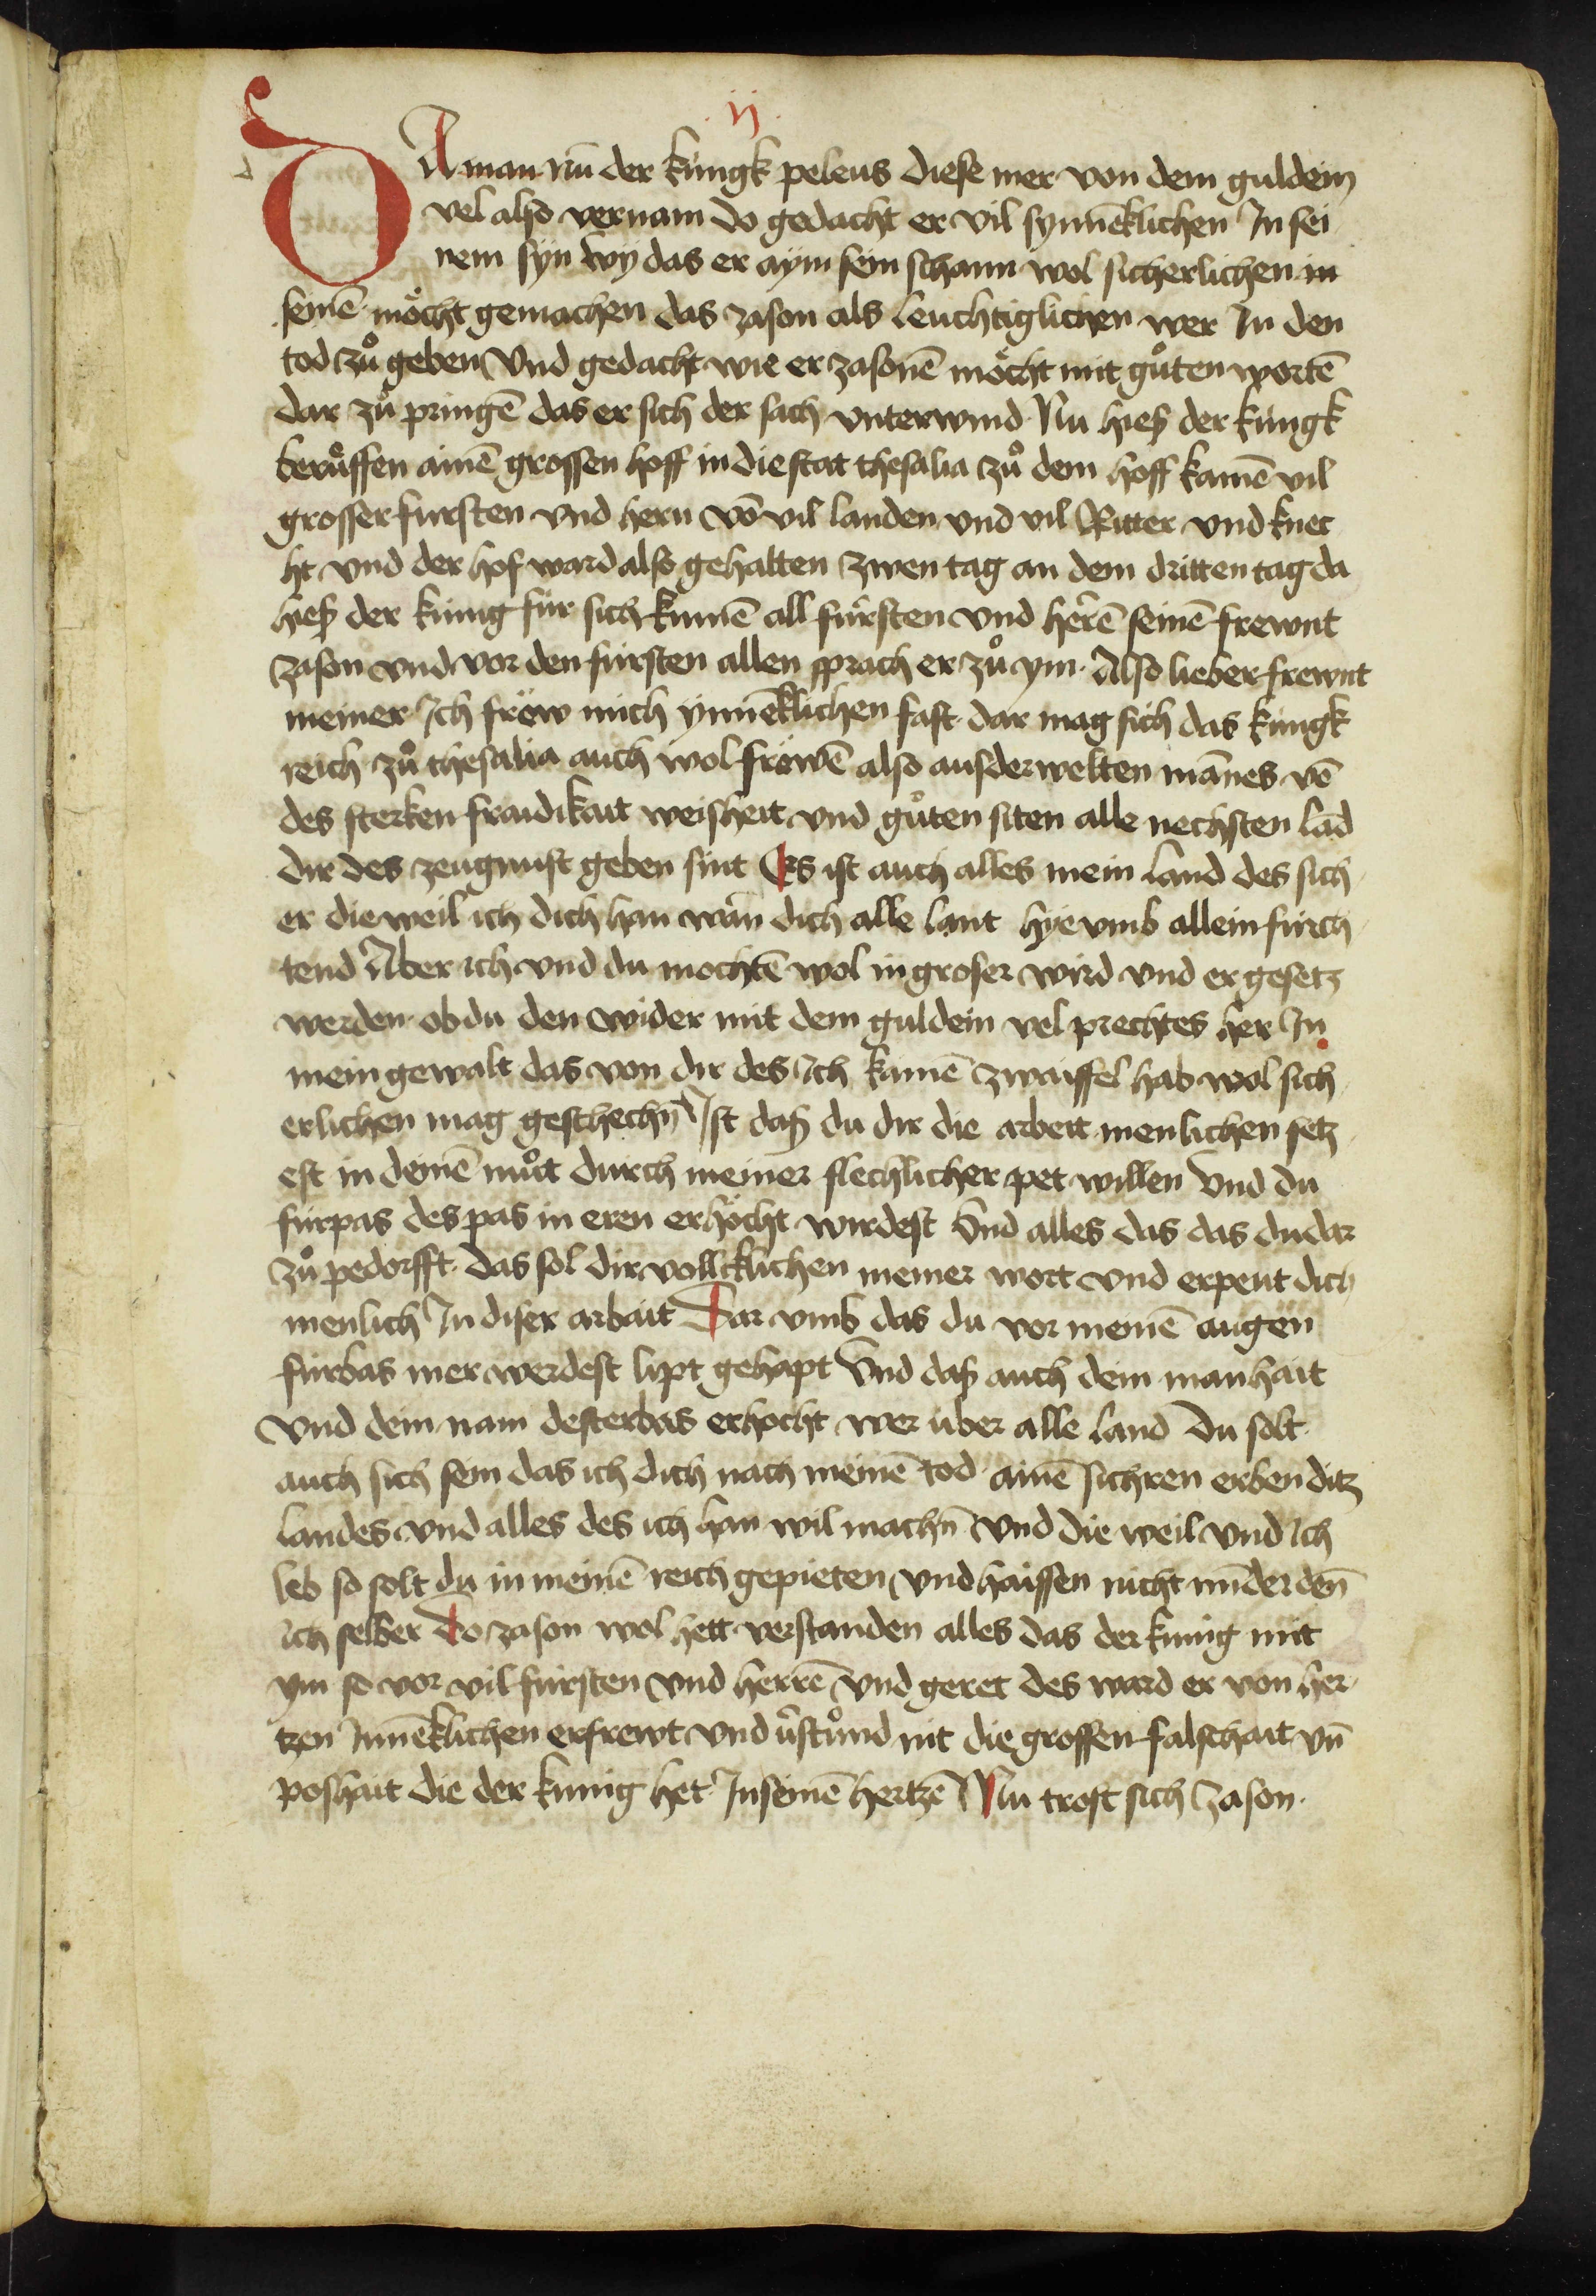 .ij.
DA man nu᷑ der kúngk peleus diese mer von dem guldein
vel also vernam do gedacht er vil synnēklichen In sei
nem syn wy das er aym sein scham wol sicherlichen in
seinē möcht gemachen das zason als leuchtiglichen wer In den
tod zů geben Vnd gedacht wie er zasonē möcht mit gůten wortē
dar zů pringē das er sich der sach vnterwind · Nu hieß der kúngk
berůffen ainē grossen hoff in die stat thesalia zů dem hoff kamē vil
grosser fursten vnd hern vō vil landen vnd vil Ritter vnd knec
ht vnd der hof ward also gehalten zwen tag an dem dritten tag da
hieß der kúnig fúr sich kumē all fúrsten vnd herrē seinē frewnt
zason vnd vor den fúrsten allen sprach er zů ym · Also lieber frewnt
meiner Ich fröw mich ynnēklichen fast · dar mag sich das kúngk
reich zů thesalia auch wol fröwē also ausderwelten mānes vō
des sterken fraidikait weisheit vnd gůten siten alle nechsten lād
dir des zeugnust geben sint Es ist auch alles mein land des sich
er die weil ich dich han wān dich alle lant hye vmb allein fúrch
tend Aber ich vnd du mochtē wol in groser wird vnd er gesetz
werden · ob du den wider mit dem guldein vel prechtes her In
mein gewalt das von dir des Ich kainē zwaiffel hab wol sich
erlichen mag geschechn̄ Ist daß du dir die arbeit menlichen setz
est in deinē můt durch meiner flechlicher pet willen Vnd du
fúrpas des pas in eren erhöcht wirdest Vnd alles das das du dar
zů pedorfft · das sol dir vollicklichen meiner wort vnd erpeut dich
menlich In diser arbait Dar vmb das du vor meinē augen
fúrbas mer werdest lipt gehapt Vnd daß auch dein manhait
Vnd dein nam desterbas erhocht wer úber alle land Du solt
auch sich sein das ich dich nach meinē tod · ainē sichren erben ditz
landes vnd alles des ich han wil machn̄ Vnd die weil vnd Ich
leb so solt du in meinē reich gepieten Vnd haissen nicht mīder den̄
Ich selber Do zason wol hett verstanden alles das der kunig mit
ym so vor vil fúrsten vnd herrē Vnd geret des ward er von her
tzen Innēklichen erfrewt vnd v᷑stůnd nit die grossen falschait vn̄
poshait die der kunig het · In seinē hertzē Nu trost sich zason ·